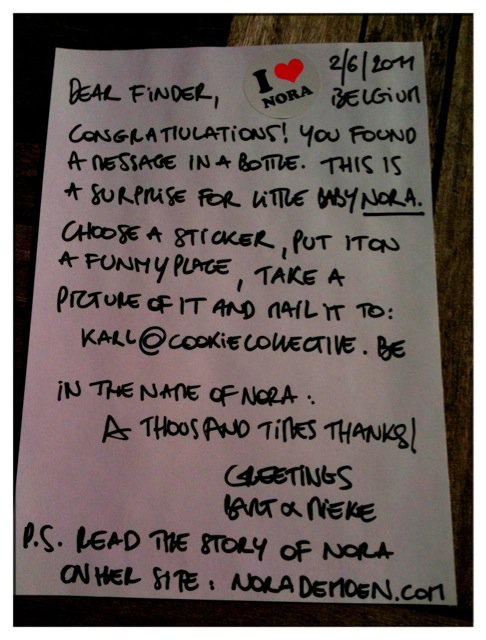 I ❤ NORA
2/6/2011
BELGIUM
DEAR FINDER,
CONGRATIULATIONS! YOU FOUND
A MESSAGE IN A BOTTLE. THIS IS
A SURPRISE FOR LITTLE BABY NORA.
CHOOSE A STICKER, PUT IT ON
A FUNNY PLACE, TAKE A
PICTURE OF IT AND MAIL IT TO:
KARL@COOKIECOLLECTIVE.BE
IN THE NAME OF NORA:
A THOUSAND TIMES THANKS!
GREETINGS
BART & MIEKE
P.S. READ THE STORY OF NORA
ON HER SITE: NORADEMOEN.COM